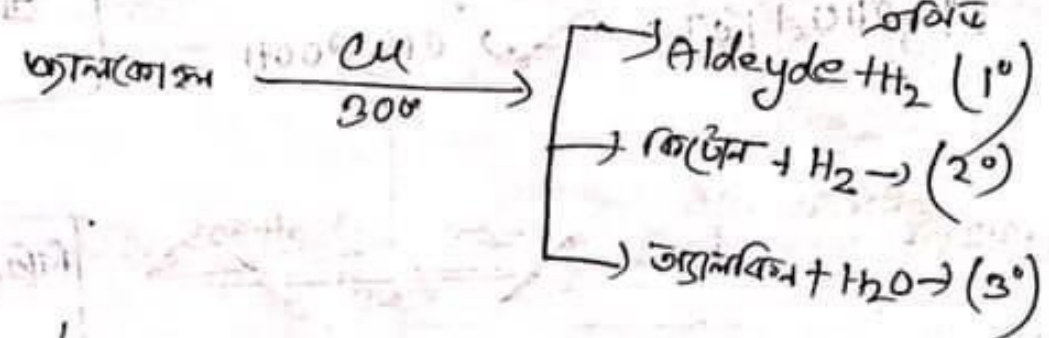 অ্যালকোহল Cu 300° →
→ Aldeyde + H₂ (1°)
→ কিটোন + H₂ → (2°)
→ অ্যালকিন + H₂O → (3°)